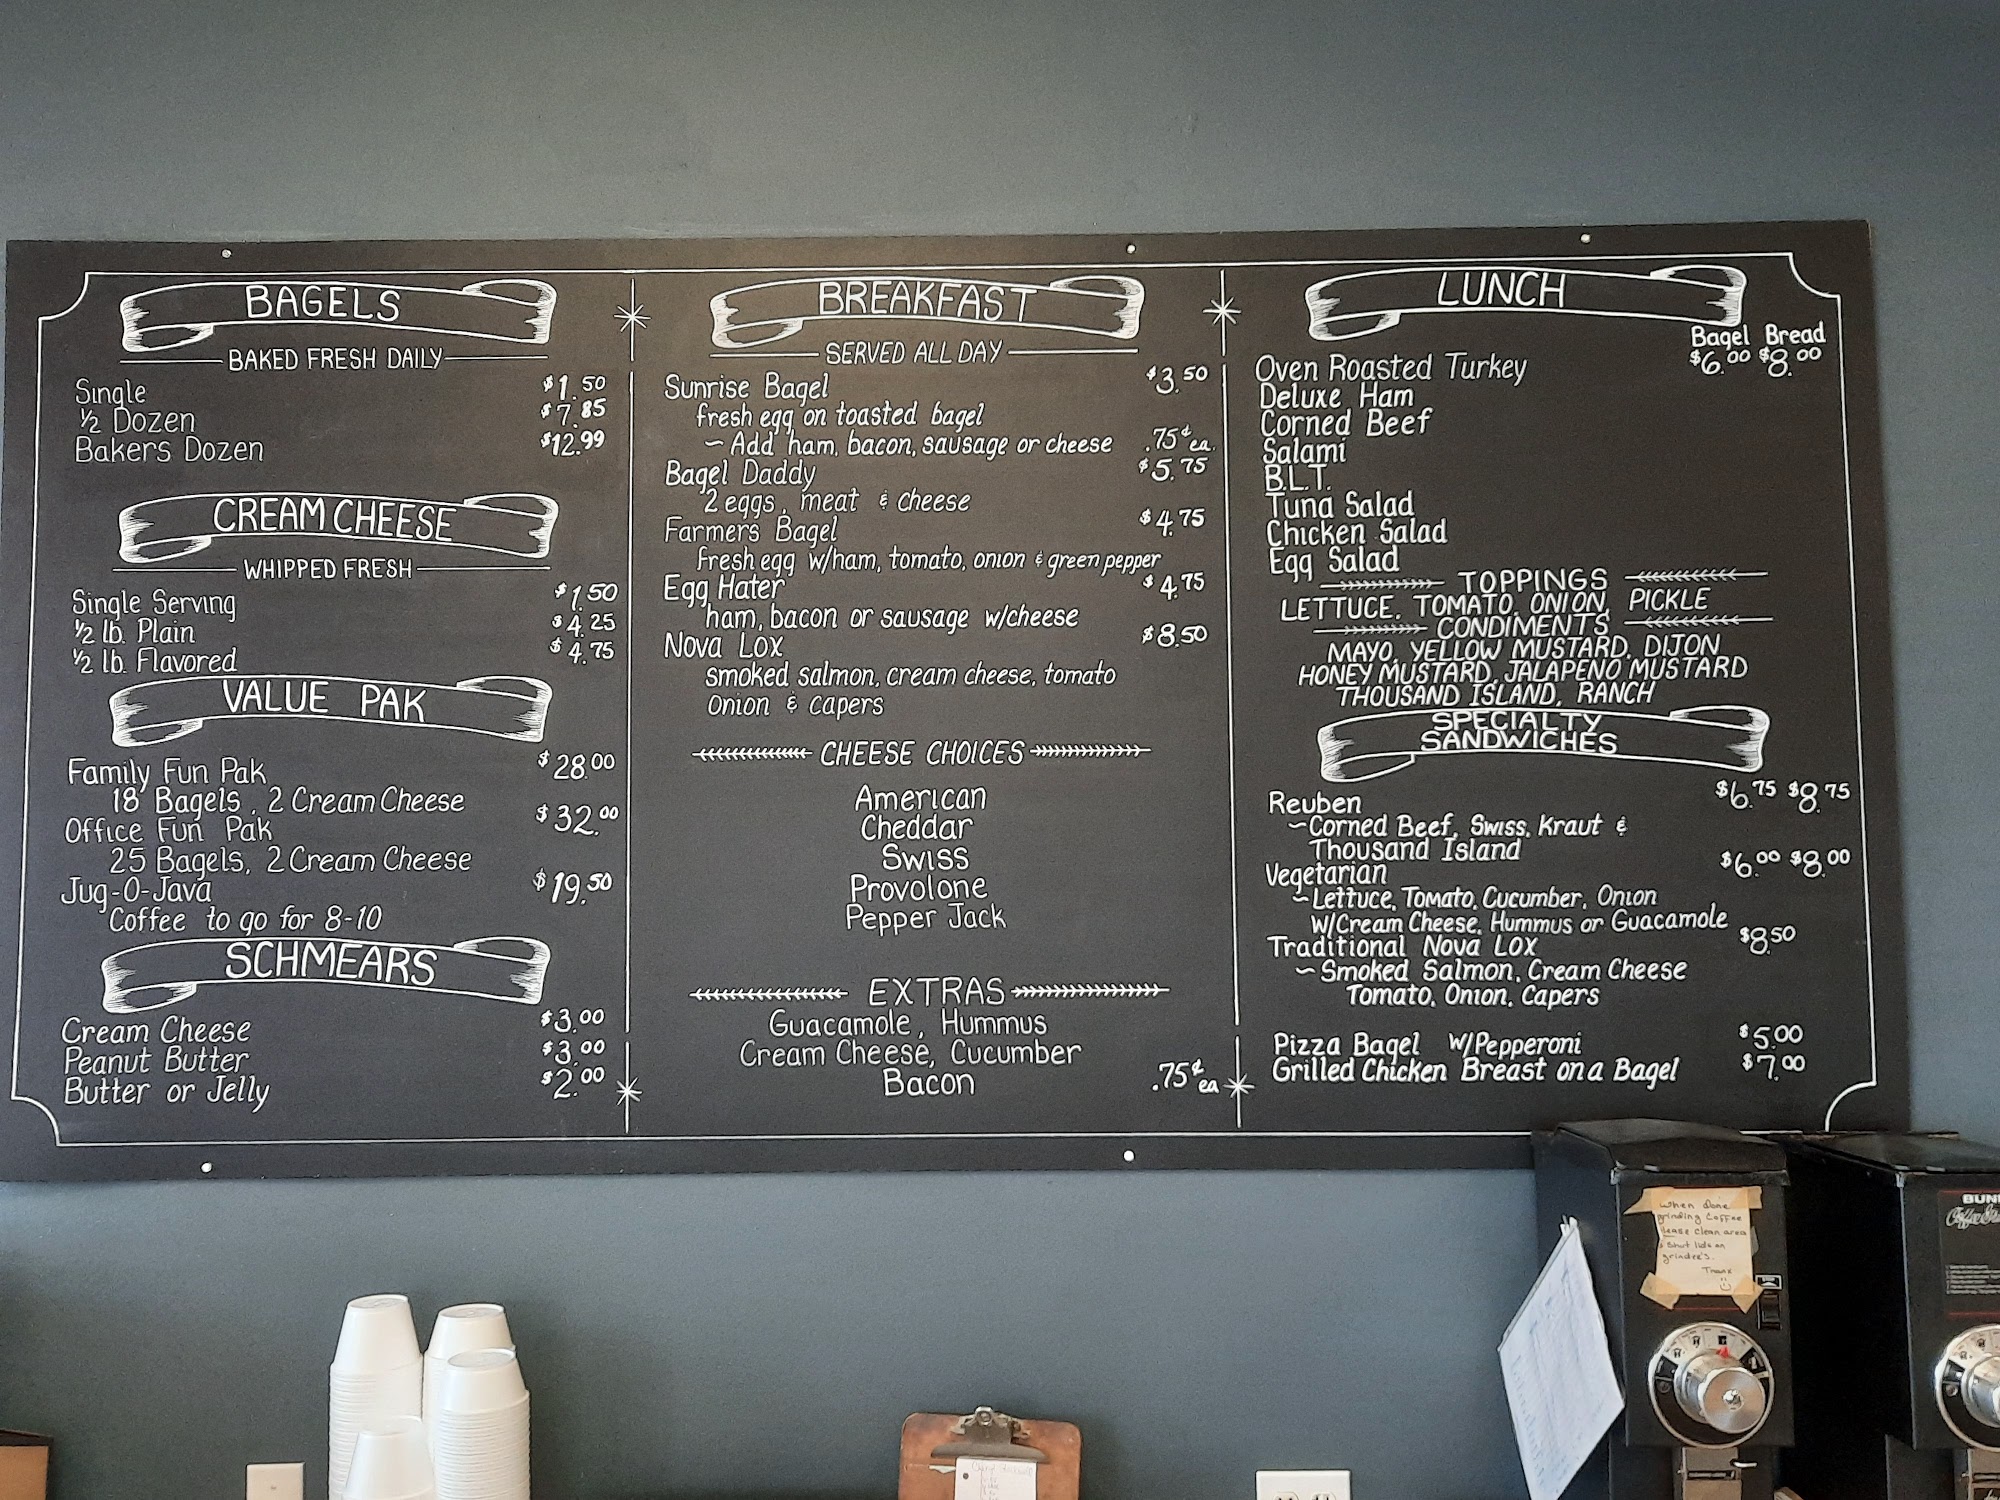 BAGELS
BAKED FRESH DAILY
Single $1.50
1/2 Dozen $7.85
Bakers Dozen $12.99
CREAM CHEESE
WHIPPED FRESH
Single Serving $1.50
1/2 lb. Plain $4.25
1/2 lb. Flavored $4.75
VALUE PAK
Family Fun Pak $28.00
18 Bagels, 2 Cream Cheese
Office Fun Pak $32.00
25 Bagels, 2 Cream Cheese
Jug-O-Java $19.50
Coffee to go for 8-10
SCHMEARS
Cream Cheese $3.00
Peanut Butter $3.00
Butter or Jelly $2.00
BREAKFAST
SERVED ALL DAY
Sunrise Bagel $3.50
fresh egg on toasted bagel
~ Add ham, bacon, sausage or cheese .75¢ ea.
Bagel Daddy $5.75
2 eggs, meat & cheese
Farmers Bagel $4.75
Fresh egg w/ham, tomato, onion & green pepper
Egg Hater $4.75
ham, bacon or sausage w/cheese
Nova Lox $8.50
smoked salmon, cream cheese, tomato
onion & capers
CHEESE CHOICES
American
Cheddar
Swiss
Provolone
Pepper Jack
EXTRAS
Guacamole, Hummus
Cream Cheese, Cucumber
Bacon .75¢ ea
LUNCH
Bagel Bread
Oven Roasted Turkey $6.00 $8.00
Deluxe Ham
Corned Beef
Salami
B.L.T.
Tuna Salad
Chicken Salad
Egg Salad
TOPPINGS
LETTUCE, TOMATO, ONION, PICKLE
CONDIMENTS
MAYO, YELLOW MUSTARD, DIJON
HONEY MUSTARD, JALAPENO MUSTARD
THOUSAND ISLAND, RANCH
SPECIALTY
SANDWICHES
Reuben $6.75 $8.75
~Corned Beef, Swiss, Kraut &
Thousand Island
Vegetarian $6.00 $8.00
~Lettuce, Tomato, Cucumber, Onion
W/Cream Cheese, Hummus or Guacamole
Traditional Nova LOX $8.50
~Smoked Salmon, Cream Cheese
Tomato, Onion, Capers
Pizza Bagel W/Pepperoni $5.00
Grilled Chicken Breast on a Bagel $7.00
When done
grinding Coffee
Please clean area
& Shut lids on
grinder's.
Thanx
BUN